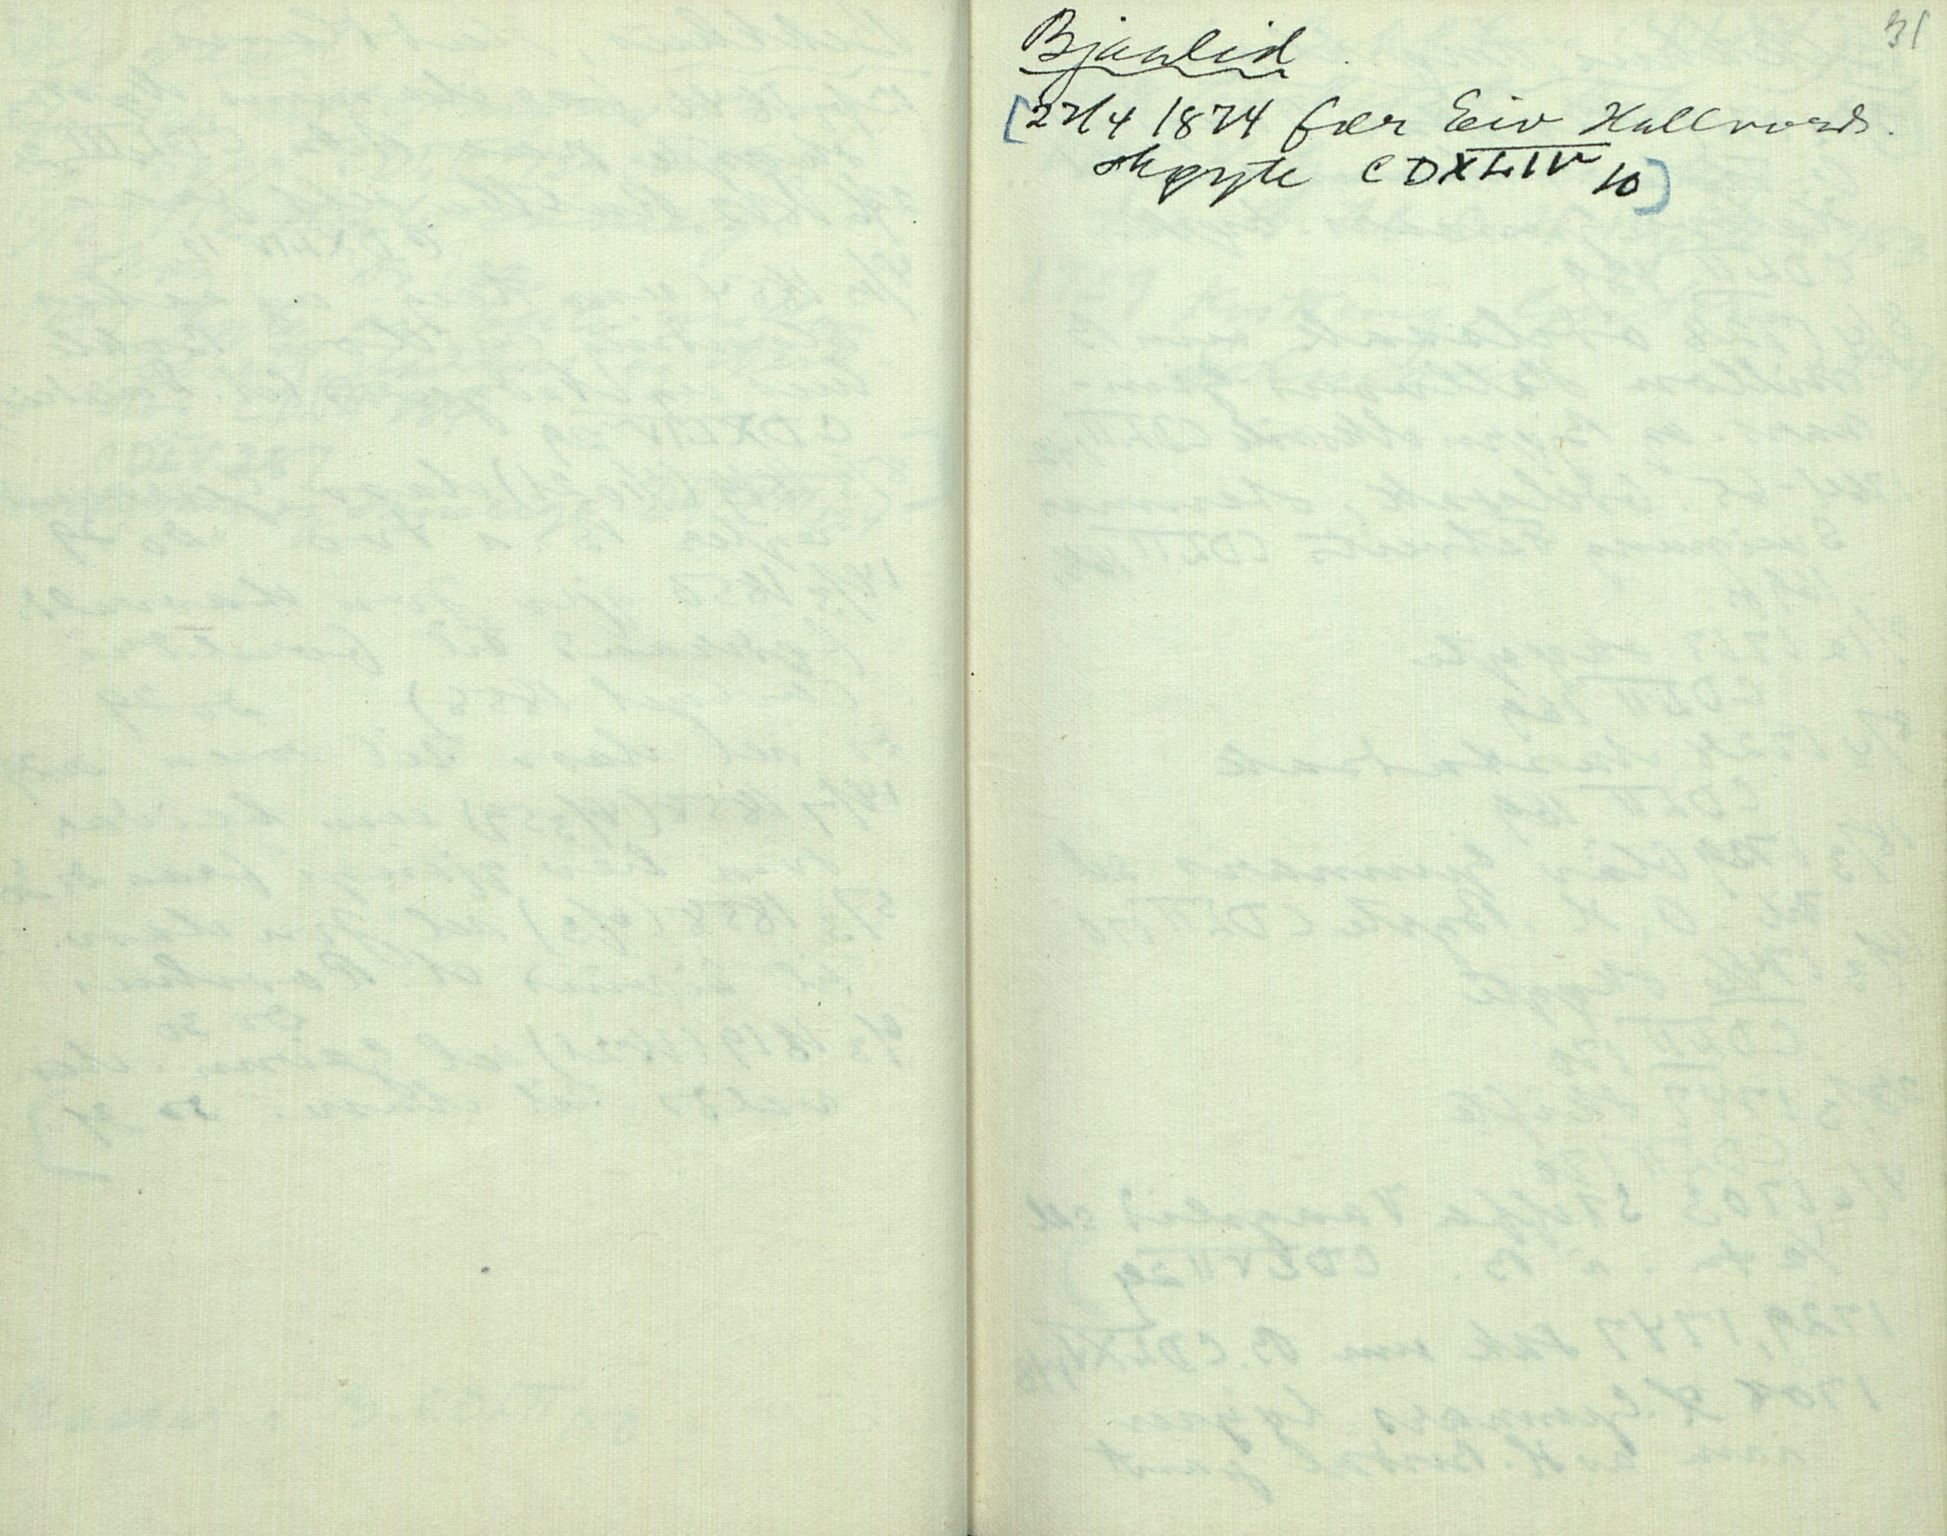 31
Bjaalid
[27/4 1874 fær Eiv Hallvords.
skøyte CDXLIV 10]